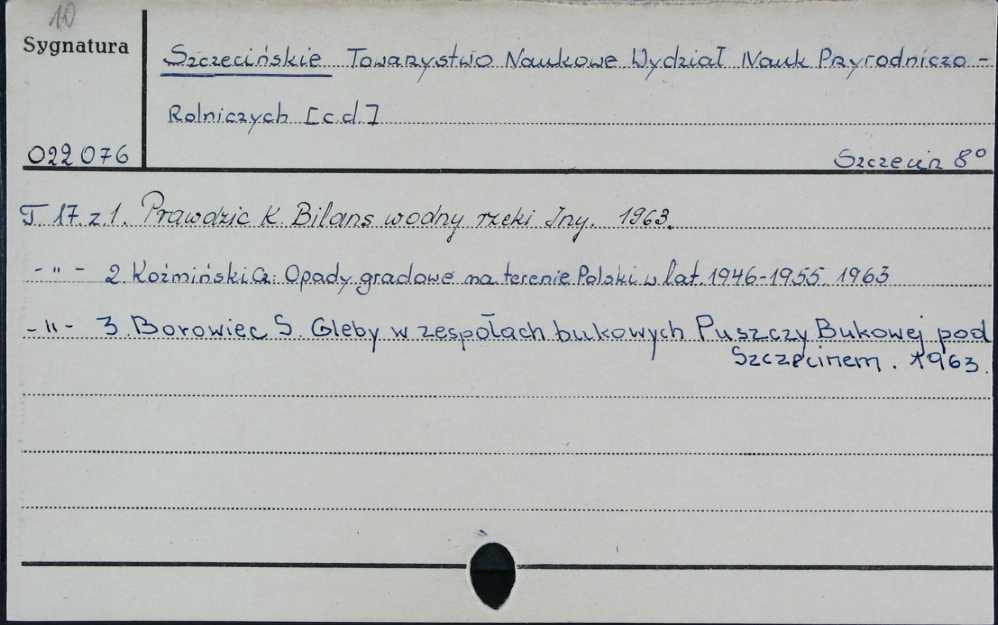 10
Sygnatura
Szczecińskie Towarzystwo Naukowe Wydział Nauk Przyrodniczo-
Rolniczych [c.d.]
022076
Szczecin 8°
T. 17. z. 1. Prawdzic K. Bilans wodny rzeki Iny. 1963.
- " - 2. Koźmiński Cz: Opady gradowe na terenie Polski w lat. 1946-1955. 1963
- " - 3. Borowiec S. Gleby w zespołach bukowych Puszczy Bukowej pod
Szczecinem. 1963.